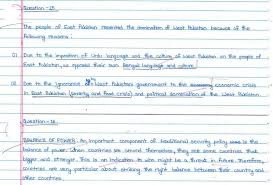 Question - 15
The people of East Pakistan resented the domination of West Pakistan because of the
following reasons :
01 Due to the imposition of Urdu language and the culture of West Pakistan on the people of
East Pakistan, as opposed their own Bengali language and culture.
02 Due to the ignorance of West Pakistan government to the economic crisis
in East Pakistan (poverty and food crisis) and political domination of the West Pakistan
Question - 16
BALANCE OF POWER : An important component of traditional security policy sees is the
balance of power. When countries see around themselves, they see some countries that
bigger and stronger. This is an indication to who might be a threat in future. Therefore,
countries are very particular about striking the right balance between their country and
other countries.